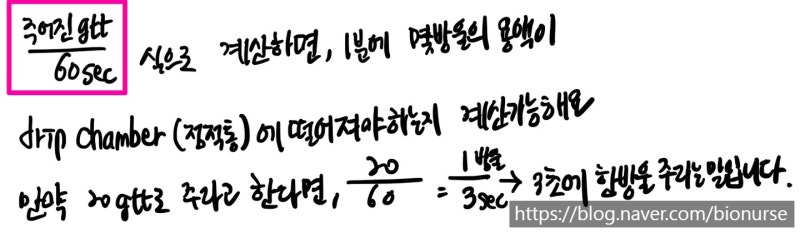 주어진 gtt
60sec 식으로 계산하면, 1분에 몇방울의 용액이
drip chamber (점적통)에 떨어져야하는지 계산가능해요
만약 20gtt로 주라고 한다면, 20/60 = 1방울/3sec → 3초에 한방울 주라는 말입니다.
https://blog.naver.com/bionurse